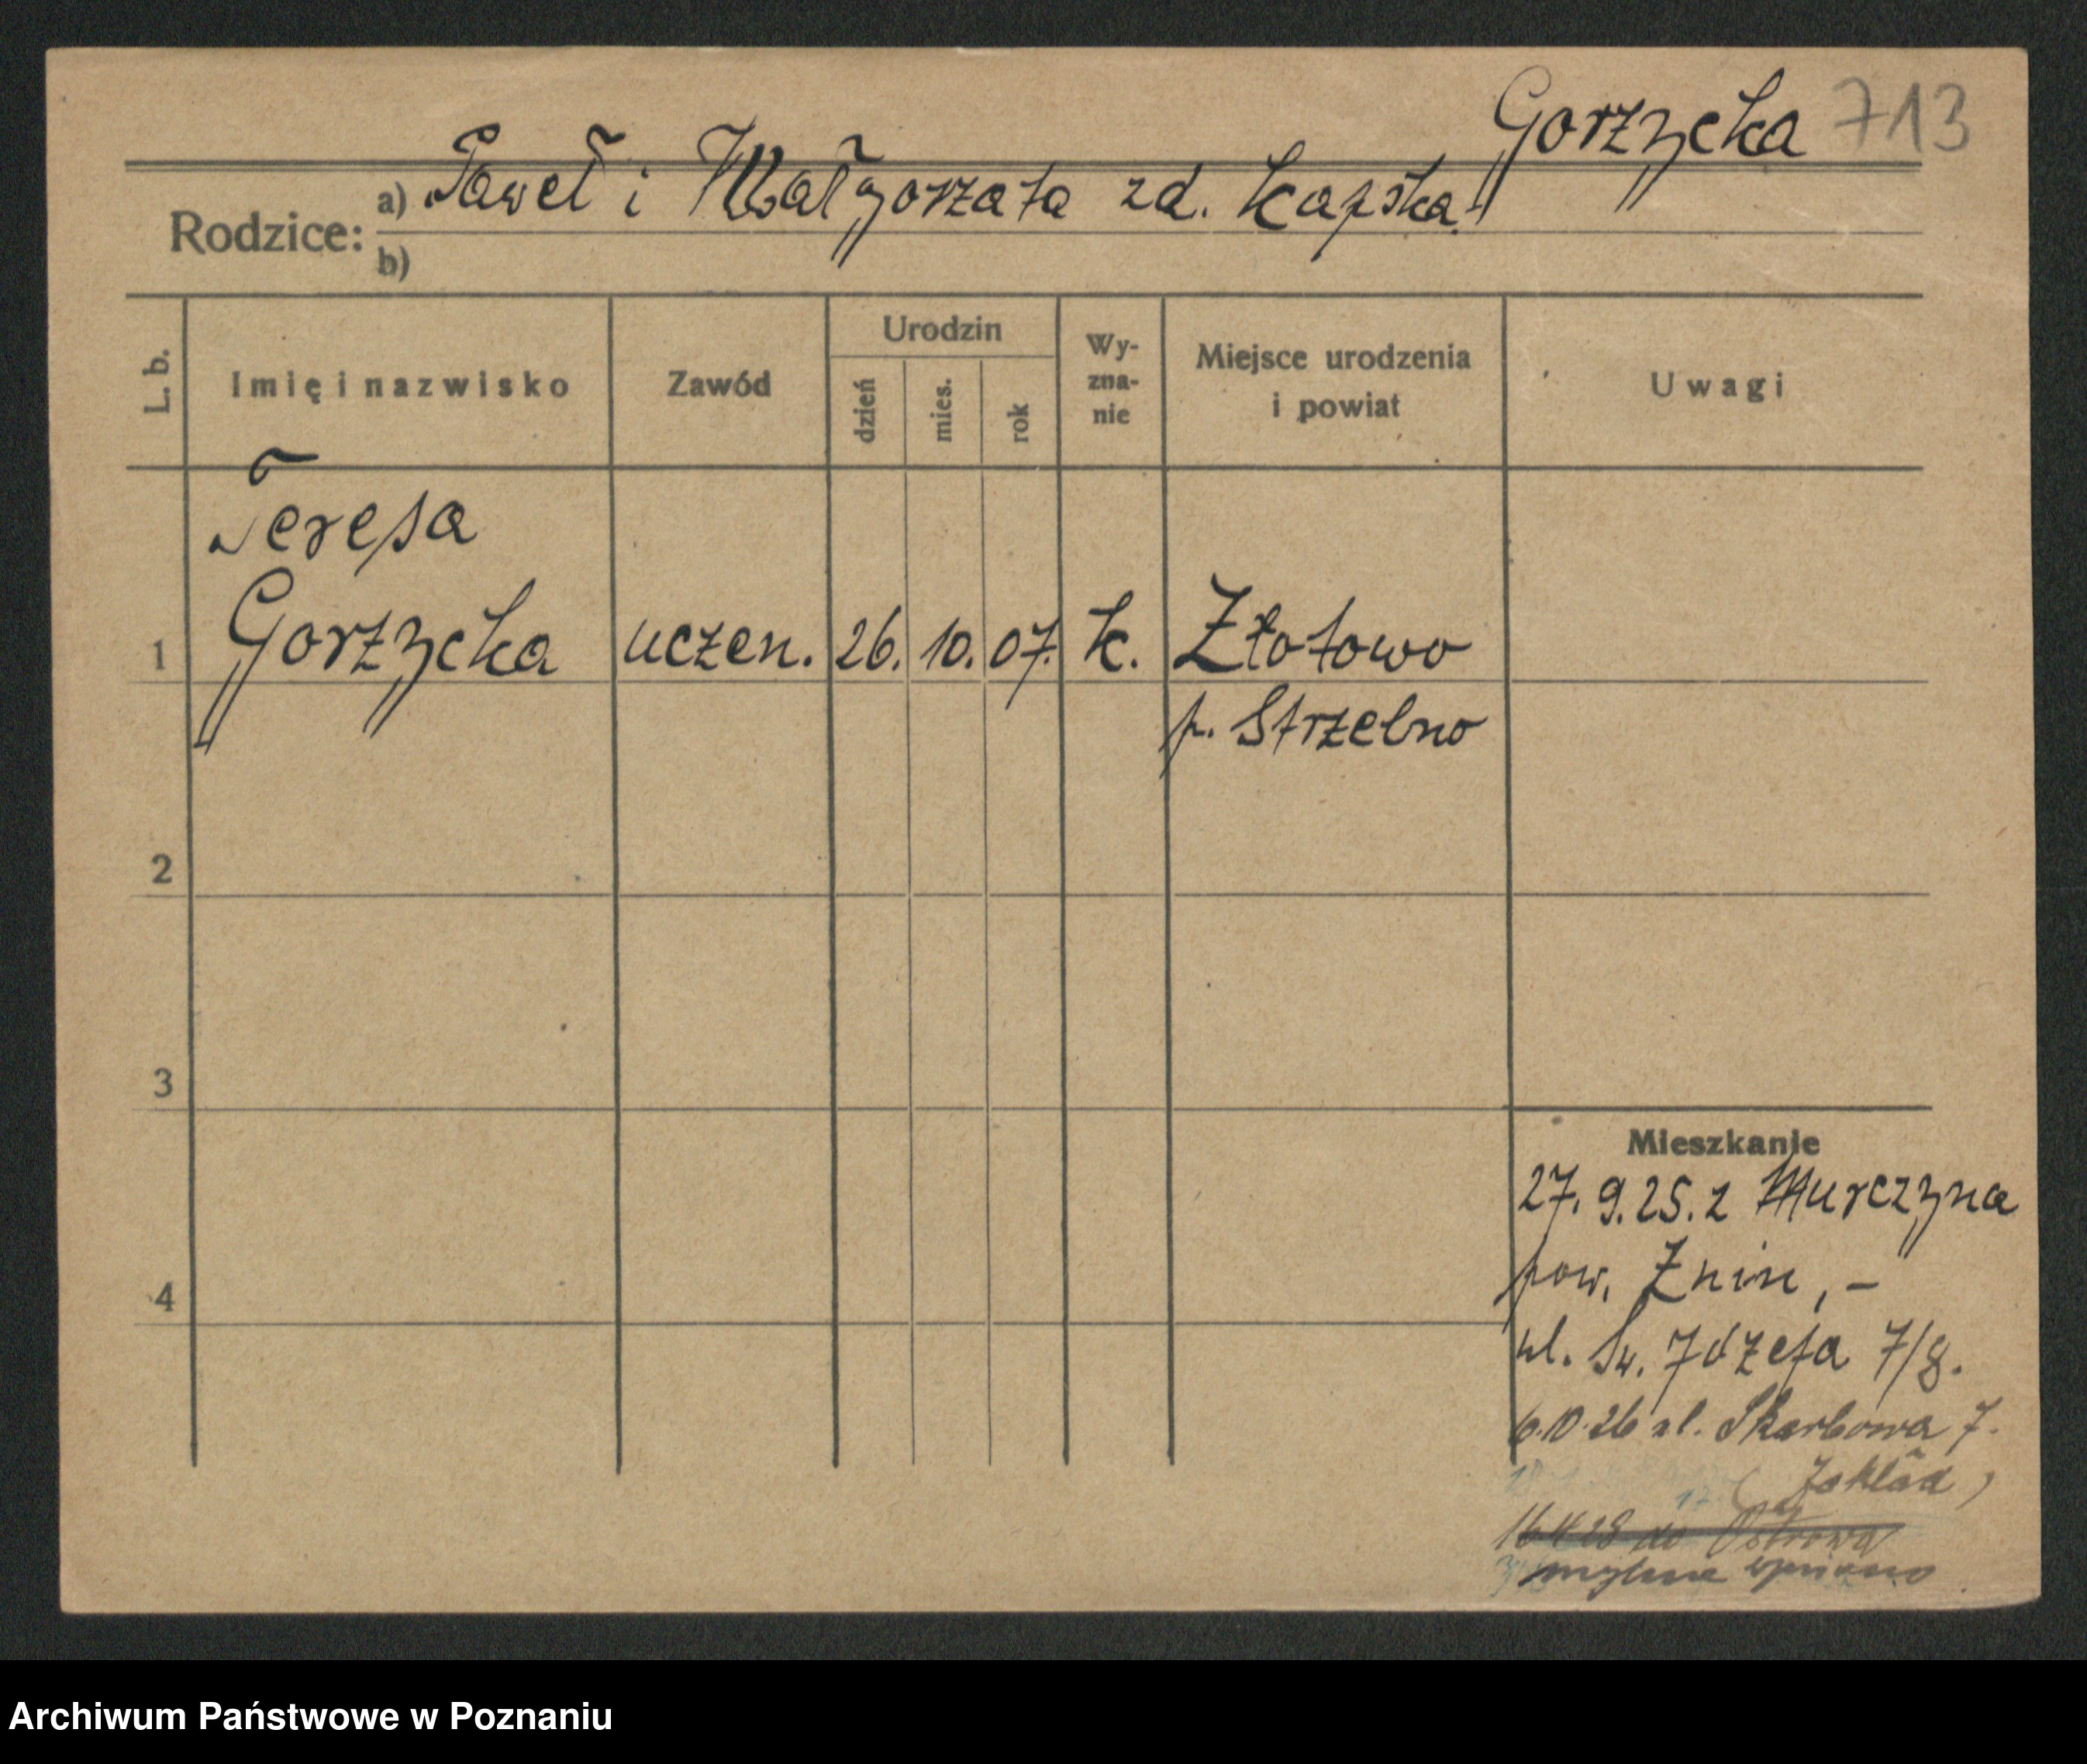 Gorzycka 713
Rodzice: a) Paweł i Małgorzata zd. Kapska
b)
L. b. Imię i nazwisko Zawód Urodzin dzień mies. rok Wy-zna-nie Miejsce urodzenia i powiat Uwagi
Teresa
1 Gorzycka uczen. 26. 10. 07. k. Złotowo
p. Strzelno
2
3
Mieszkanie
27. 9. 25. z Murczyna
4 pow. Żnin, -
ul. Św. Józefa 7/8.
6.10.26 ul. Skarbowa 7.
(Zakład)
do Ostrowa
mylnie wpisano
Archiwum Państwowe w Poznaniu